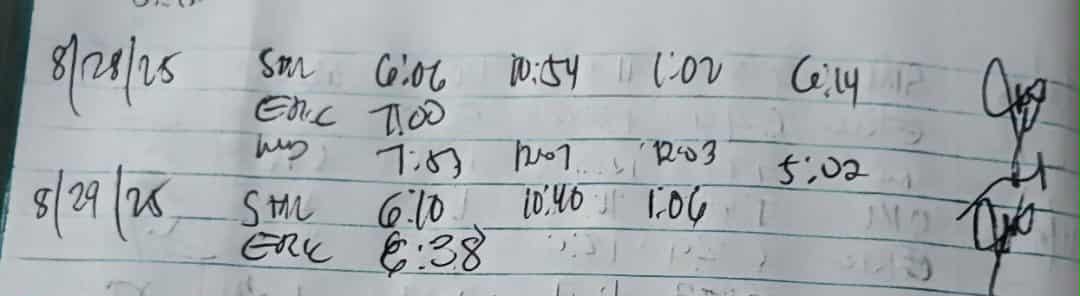 8/28/25 Stn 6:06 10:54 1:02 6:14
Eric 7:00
7:53 12:07 12:03 5:02
8/29/25 Stn 6:10 10:40 1:06
Eric 6:38